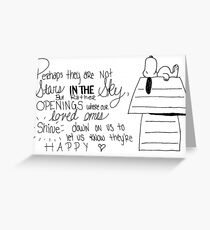 Perhaps they are not
Stars IN THE Sky,
But Rather
OPENINGS where our
...loved ones
Shine down on us to
...let us know they're
HAPPY